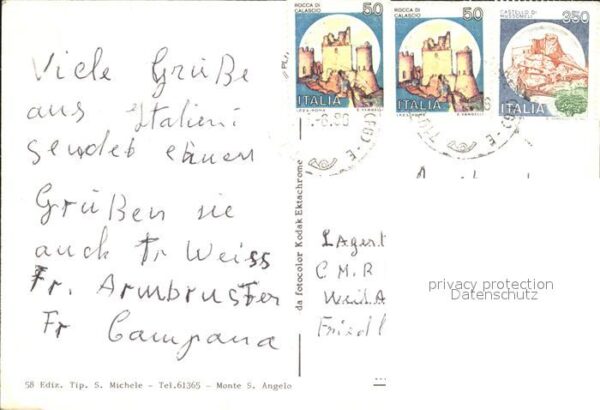 Viele Grüße
aus Italien
sendet ihnen
Grüßen sie
auch Fr Weiss
Fr. Armbruster
Fr Campana
58 Ediz. Tip. S. Michele - Tel.61365 - Monte S. Angelo
da fotocolor Kodak Ektachrome
ROCCA DI
CALASCIO
50
ITALIA
ROCCA DI
CALASCIO
50
ITALIA
CASTELLO DI
MUSSOMELI
350
ITALIA
C M R
privacy protection
Datenschutz